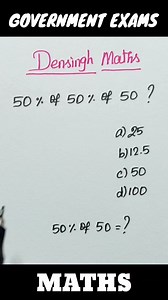 GOVERNMENT EXAMS
Densingh Maths
50 % of 50 % of 50 ?
a) 25
b) 12.5
c) 50
d) 100
50 % of 50 = ?
MATHS